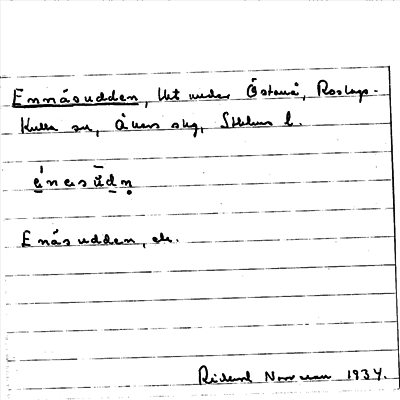 Ennäsudden, Utt under Östanå, Roslags-
Kulla sn, Åkers slg, Sthlms l.
Enäsudden, ek.
Rickard Norrman 1934.